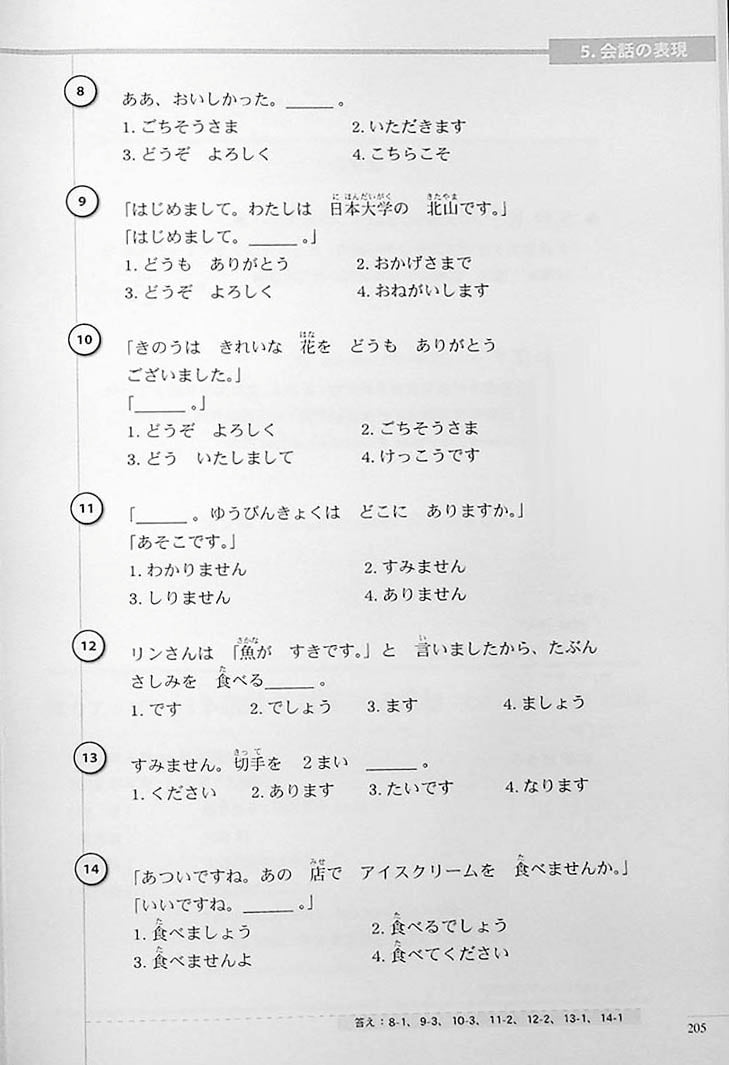 5. 会話の表現
8
ああ、おいしかった。_____ 。
1. ごちそうさま 2. いただきます
3. どうぞ よろしく 4. こちらこそ
9
にほんだいがく きたやま
「はじめまして。わたしは 日本大学の 北山です。」
「はじめまして。_____ 。」
1. どうも ありがとう 2. おかげさまで
3. どうぞ よろしく 4. おねがいします
10
はな
「きのうは きれいな 花を どうも ありがとう
ございました。」
「_____ 。」
1. どうぞ よろしく 2. ごちそうさま
3. どう いたしまして 4. けっこうです
11
「_____ 。ゆうびんきょくは どこに ありますか。」
「あそこです。」
1. わかりません 2. すみません
3. しりません 4. ありません
12
さかな い
リンさんは 「魚が すきです。」と 言いましたから、たぶん
た
さしみを 食べる_____ 。
1. です 2. でしょう 3. ます 4. ましょう
13
きって
すみません。切手を 2まい _____ 。
1. ください 2. あります 3. たいです 4. なります
14
みせ た
「あついですね。あの 店で アイスクリームを 食べませんか。」
「いいですね。_____ 。」
た た
1. 食べましょう 2. 食べるでしょう
た た
3. 食べませんよ 4. 食べてください
答え：8-1、9-3、10-3、11-2、12-2、13-1、14-1
205